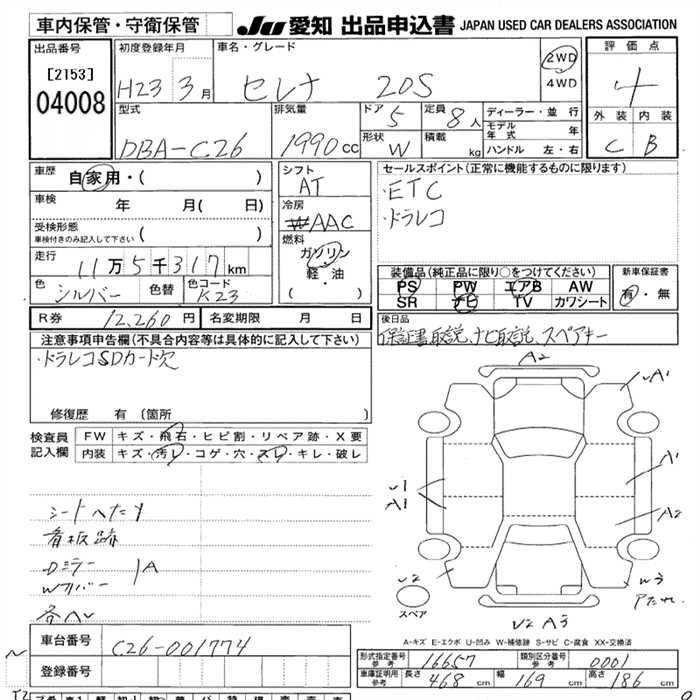 車内保管・守衛保管
JU 愛知 出品申込書 JAPAN USED CAR DEALERS ASSOCIATION
出品番号
[2153]
04008
初度登録年月
H23 3月
車名・グレード
セレナ 20S
2WD
4WD
評価点
4
外装 内装
C B
型式
DBA-C26
排気量
1990cc
ドア 5
定員 8人
形状 W
積載 kg
ディーラー・並行
モデル年式 年
ハンドル 左・右
車歴 自家用・( )
車検 年 月( 日)
受検形態
車検付きのみ記入して下さい ( )
走行 11万5千317km
色 シルバー 色替 色コード K23
シフト
AT
冷房
AAC
燃料
ガソリン
軽・油
( )
セールスポイント(正常に機能するものに限ります)
・ETC
・ドラレコ
装備品(純正品に限り○をつけてください)
PS PW エアB AW
SR ナビ TV カワシート
新車保証書
有・無
R券 12,260円 名変期限 月 日
後日品
保証書、取説、ナビ取説、スペアキー
注意事項申告欄(不具合内容等は具体的に記入して下さい)
・ドラレコSDカード欠
修復歴 有(箇所 )
検査員記入欄
FW キズ・飛石・ヒビ割・リペア跡・X要
内装 キズ・汚レ・コゲ・穴・スレ・キレ・破レ
シートヘタリ
看板跡
Dミラー
Wカバー
A
各ヘレ
A2
A1
A1
A2
A1
V2
W3
V2 A3
スペア
A-キズ E-エクボ U-凹み W-補修跡 S-サビ C-腐食 XX-交換済
車台番号 C26-001774
登録番号
形式指定番号 参考 16657
類別区分番号 参考 0001
車庫証明用 参考 長さ 468cm 幅 169cm 高さ 186cm